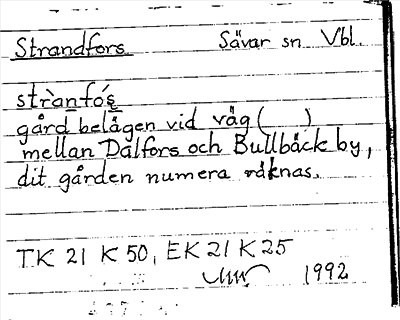 Strandfors Sävar sn Vbl.
strànfó́ṣ
gård belägen vid väg ( )
mellan Dalfors och Bullbäck by,
dit gården numera räknas.
TK 21 K 50, EK 21 K 25
1992